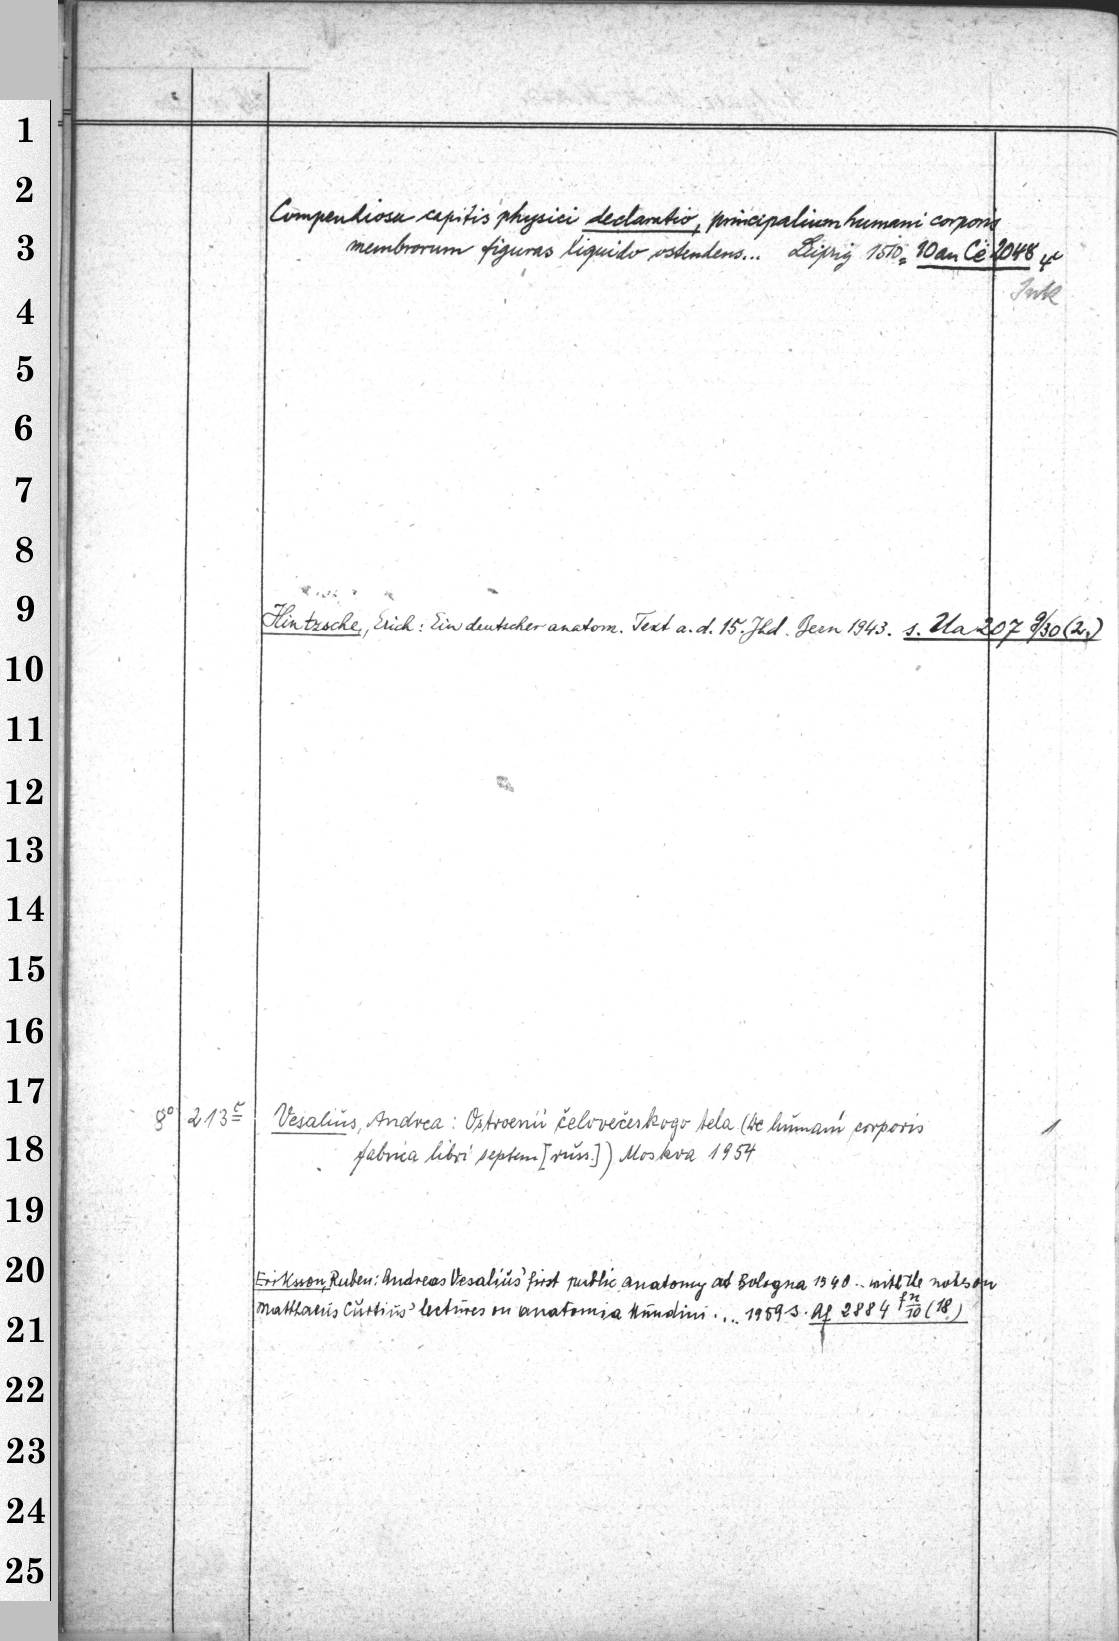 1
2
Compendiosa capitis physici declaratio, principalium humani corporis
3
membrorum figuras liquido ostendens... Leipzig 1510. 10 an Ce 2048 4°
4
Ink
5
6
7
8
9
Hintzsche, Erich: Ein deutscher anatom. Text a. d. 15. Jhd. Bern 1943. s. Ua 207 g/30 (2.)
10
11
12
13
14
15
16
17
8° 213 c Vesalius, Andrea: O stroenii čelovečeskogo tela (De humani corporis 1
18
fabrica libri septem [russ.]) Moskva 1954
19
20
Eriksson, Ruben: Andreas Vesalius' first public anatomy at Bologna 1540.. with the notes on
Matthaeus Curtius' lectures on anatomia Mundini... 1959 s. Af 2884 f n/10 (18.)
21
22
23
24
25